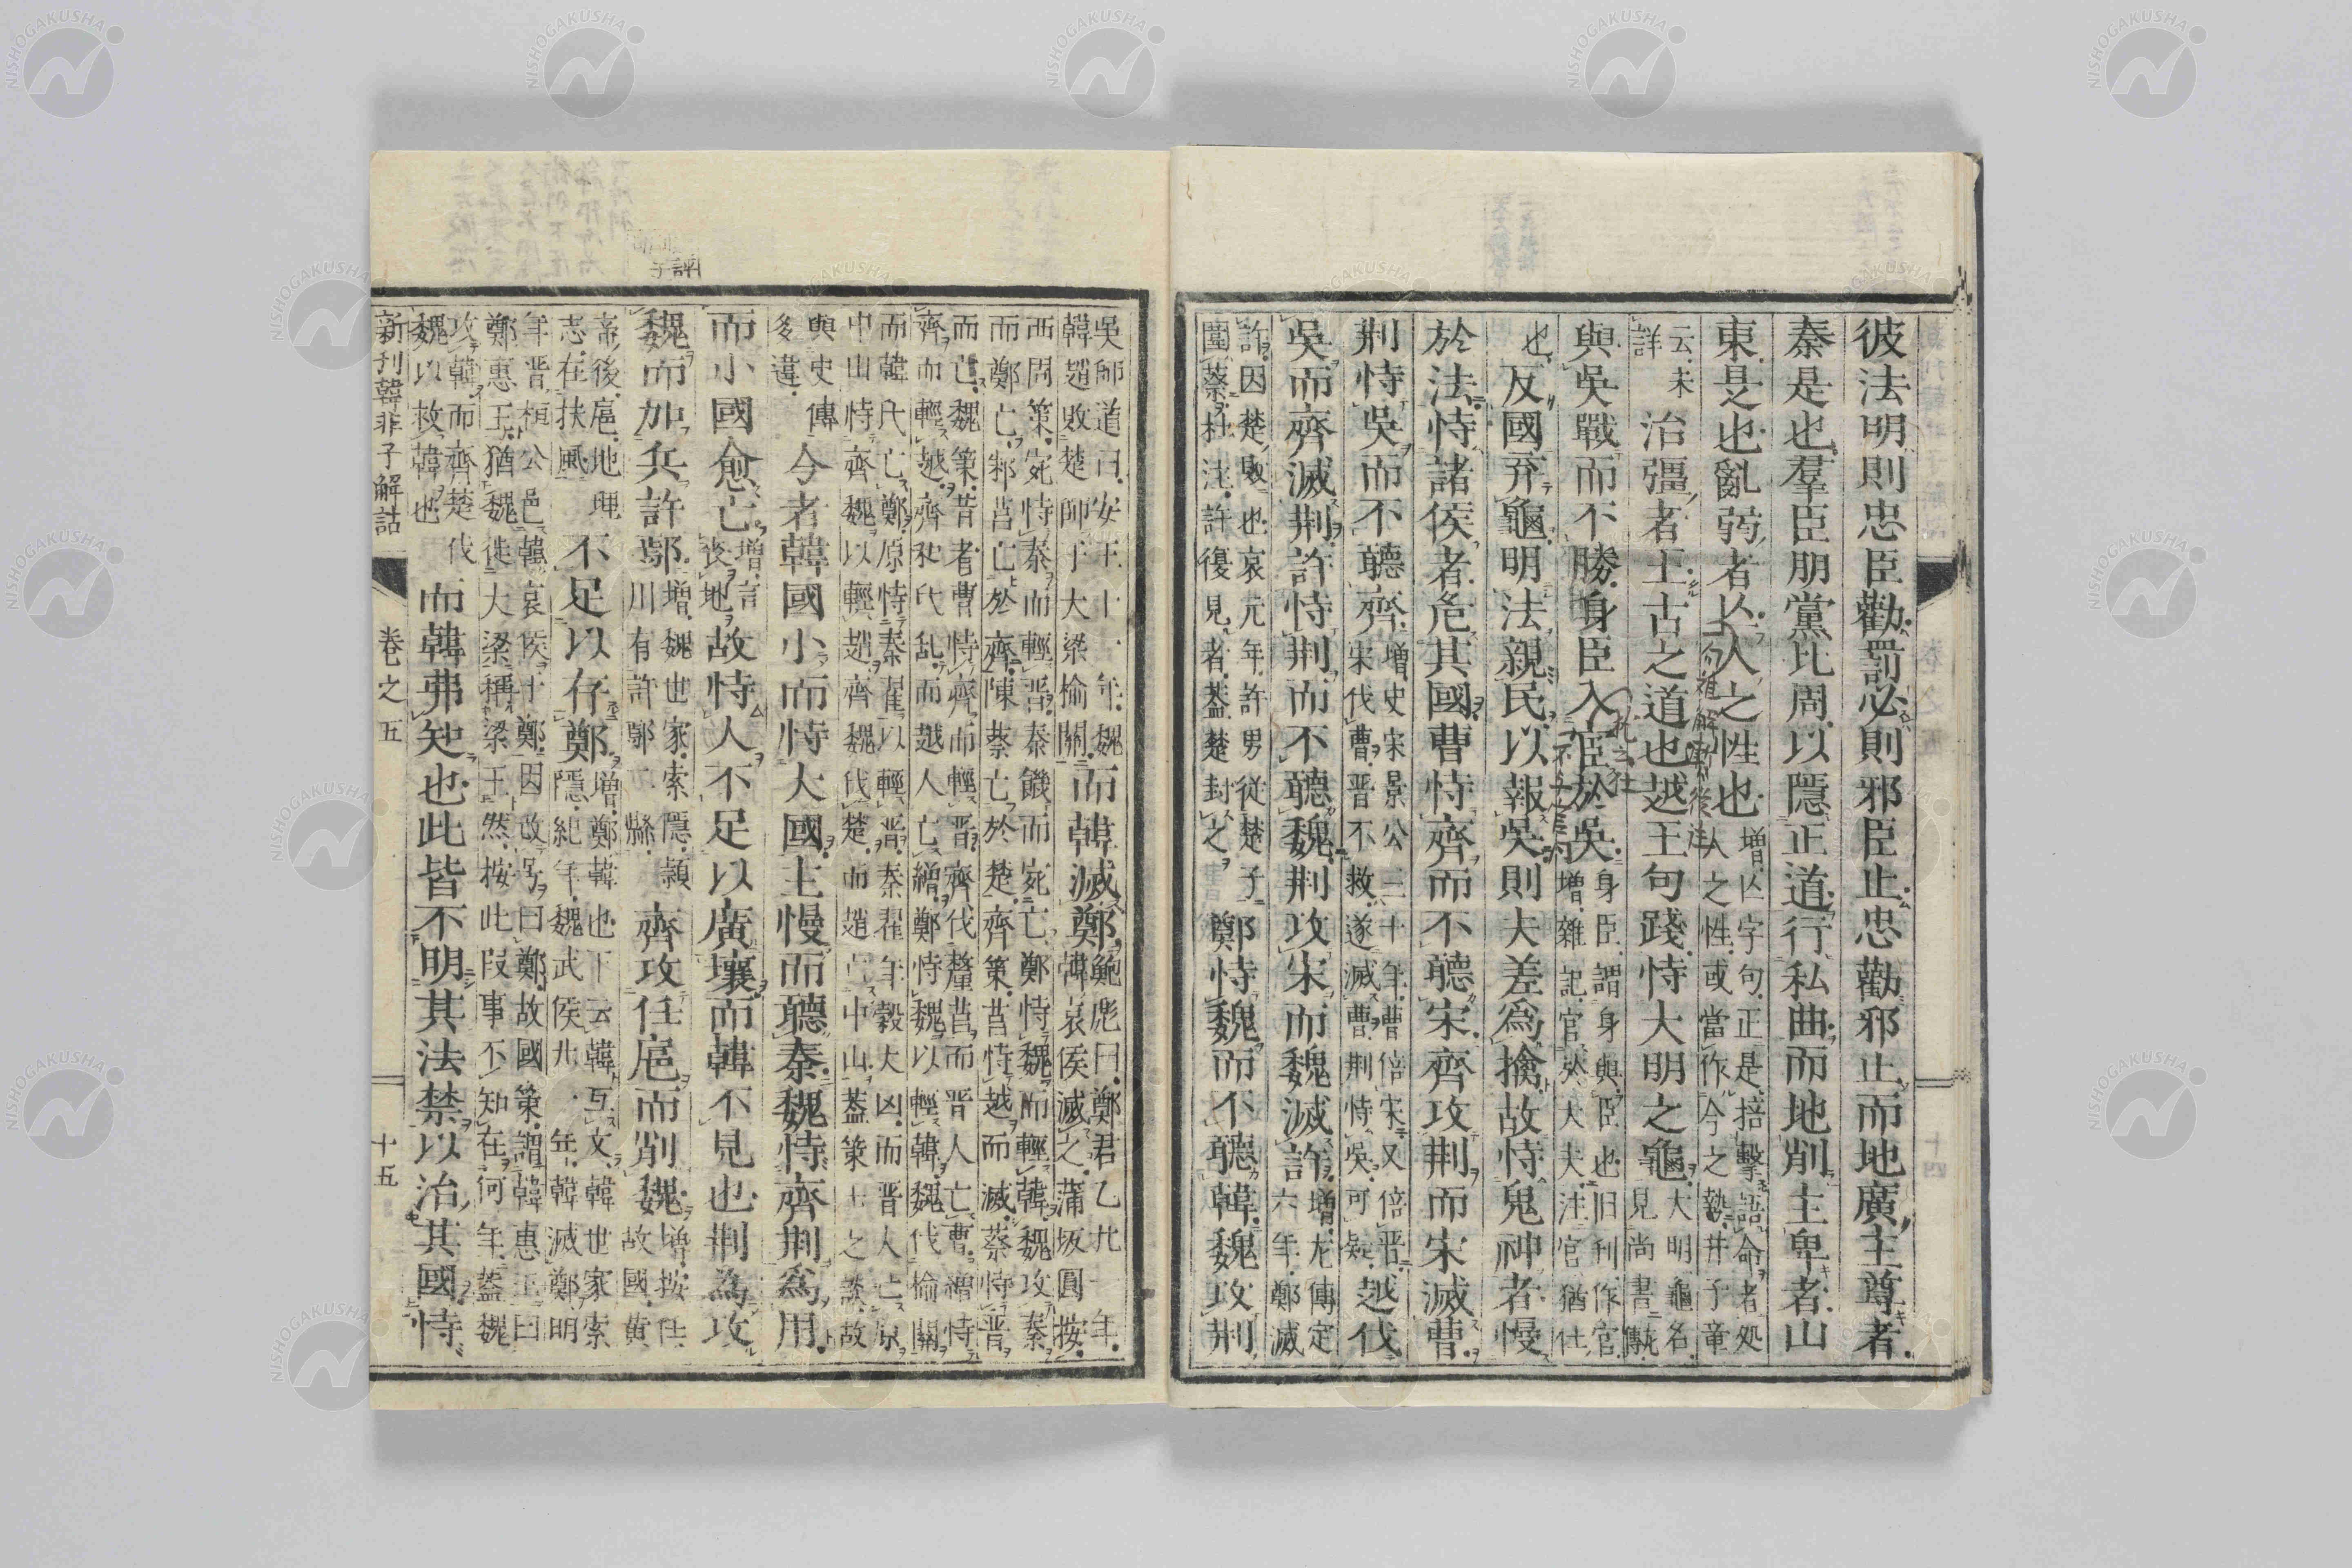 彼法明則忠臣勸罰必則邪臣止忠勸邪止而地廣主尊者
秦是也羣臣朋黨比周以隱正道行私曲而地削主卑者山
東是也亂弱者亡人之性也增亡字句正是掊擊語命者処
人之性或當作今之埶井子章
云未
詳
治彊者王古之道也越王句踐恃大明之龜大明龜名
見尚書
與吳戰而不勝身臣入宦於吳身臣謂身與臣也旧刊作官
增雜記官於大夫注官猶仕
也反國弃龜明法親民以報吳則夫差爲擒故恃鬼神者慢
於法恃諸侯者危其國曹恃齊而不聽宋齊攻荆而宋滅曹
荆恃吳而不聽齊增史宋景公三十年曹倍宋又倍晋
宋伐曹晋不救遂滅曹荆恃吳可疑
越伐
吳而齊滅荆許恃荆而不聽魏荆攻宋而魏滅許增左傳定
六年鄭滅
許因楚敗也哀元年許男從楚子
圍蔡杜注許復見者蓋楚封之
鄭恃魏而不聽韓魏攻荆
吳師道曰安王十一年魏
韓趙敗楚師于大梁榆關
而韓滅鄭鮑彪曰鄭君乙九年
韓哀侯滅之蒲坂圓按
西周策宛恃秦而輕晋秦饑而宛亡鄭恃魏而輕韓魏攻秦
而鄭亡邾莒亡於齊陳蔡亡於楚齊策莒恃越而滅蔡恃晋
而亡魏策昔者曹恃齊而輕晋齊伐釐莒而晋人亡曹繒恃
齊而輕越齊和代乱而越人亡繒鄭恃魏以輕韓魏伐榆關
而韓氏亡鄭原恃秦翟以輕晋秦翟年穀大凶而晋人亡原
中山恃齊魏以輕趙齊魏伐楚而趙亡中山蓋策士之談故
與史傳
多違
今者韓國小而恃大國主慢而聽秦魏恃齊荆爲用
而小國愈亡增言
喪地
故恃人不足以廣壤而韓不見也荆爲攻
魏而加兵許鄢增魏世家索隱潁
川有許鄢二縣
齊攻任扈而削魏增按任
故國黄
帝後扈地理
志在扶風
不足以存鄭增鄭韓也下云韓互文韓世家索
隱紀年魏武侯廿一年韓滅鄭明
年晋桓公邑韓哀侯于鄭因改号曰鄭故國策謂韓惠王曰
鄭惠王猶魏徙大梁稱梁王然按此段事不知在何年蓋魏
攻韓而齊楚伐
魏以救韓也
而韓弗知也此皆不明其法禁以治其國恃
新刊韓非子解詁
卷之五
十五